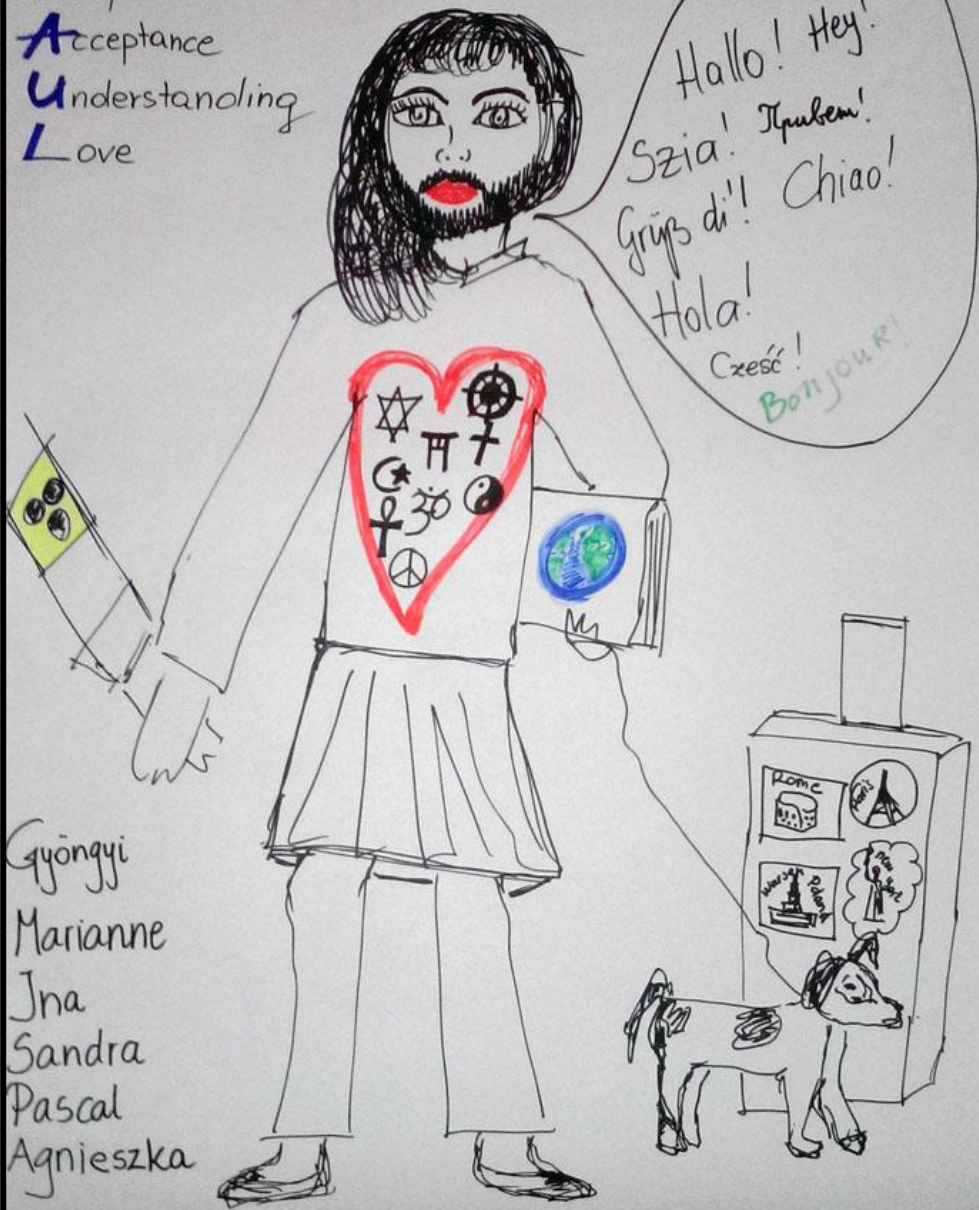 Acceptance
Understanding
Love
Hallo! Hey!
Szia! Привет!
Grüß di'! Chiao!
Hola!
Cześć!
Bonjour!
Rome
Paris
Warsaw Poland
New York
Gyöngyi
Marianne
Jna
Sandra
Pascal
Agnieszka